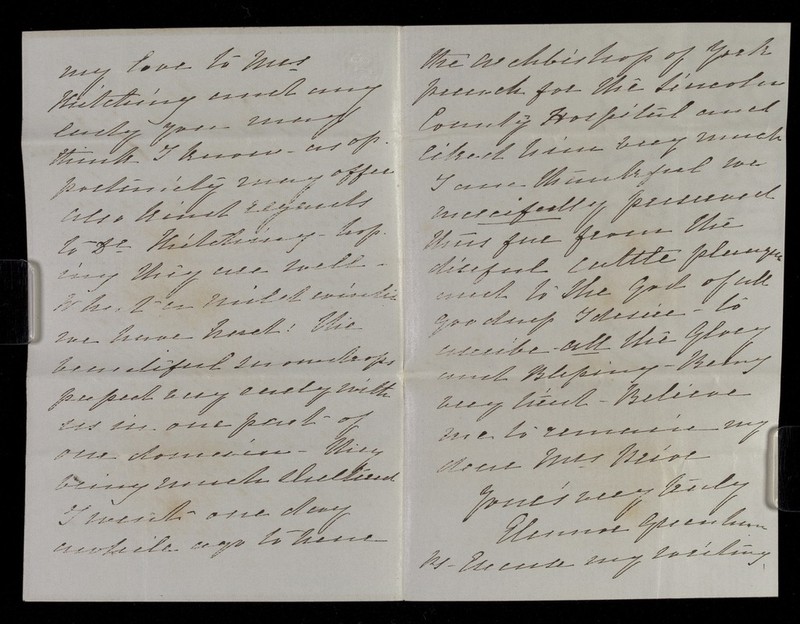 my love to Mrs
Hutching and any
early you may
think I know - as op-
portunity may offer
also kind regards
to Dr Hutching - hop-
ing they are well -
What a mild winter
we have had! the
beautiful snowdrops
peeped very early with
us in one part of
our domain - they
being much sheltered
I went one day
awhile ago to hear
the Archbishop of York
preach for the Lincoln
County Hospital and
liked him very much
I am thankful we
mercifully preserved
thus far from the
direful cattle plague
and to the God of all
goodness I desire - to
ascribe all the Glory
and Blessing - Being
very tired - Believe
me to remain my
dear Mrs
Your's very truly
Elenor
Ps - Excuse my writing